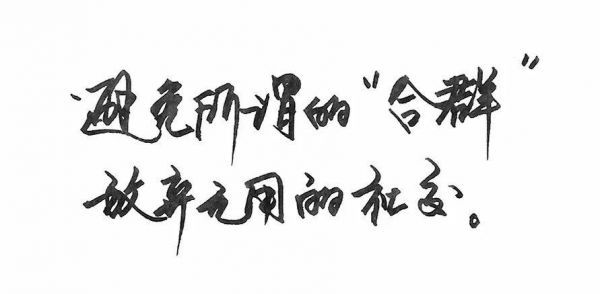 避免所谓的"合群"
放弃无用的社交。